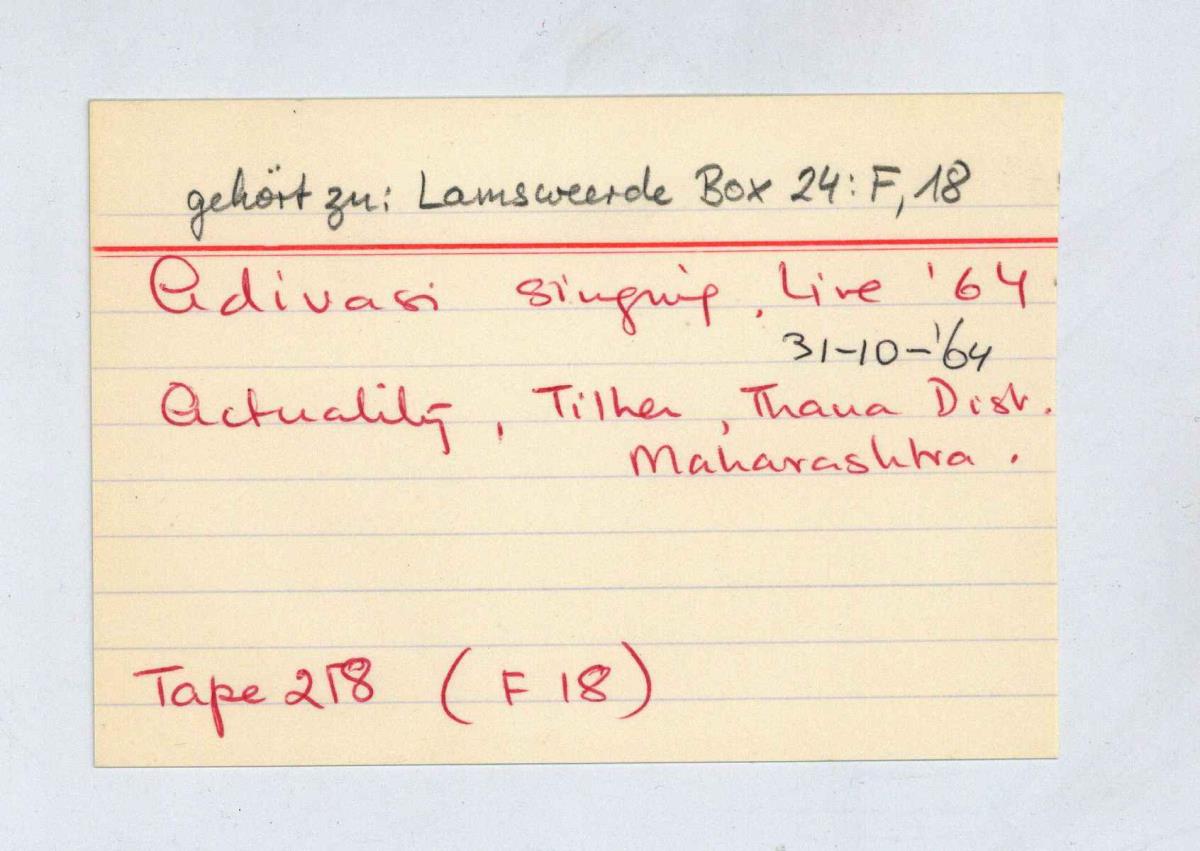 gehört zu: Lamsweerde Box 24: F, 18
Adivasi singing, Live '64
31-10-'64
Actuality, Tilher, Thana Dist.
Maharashtra.
Tape 218 (F 18)